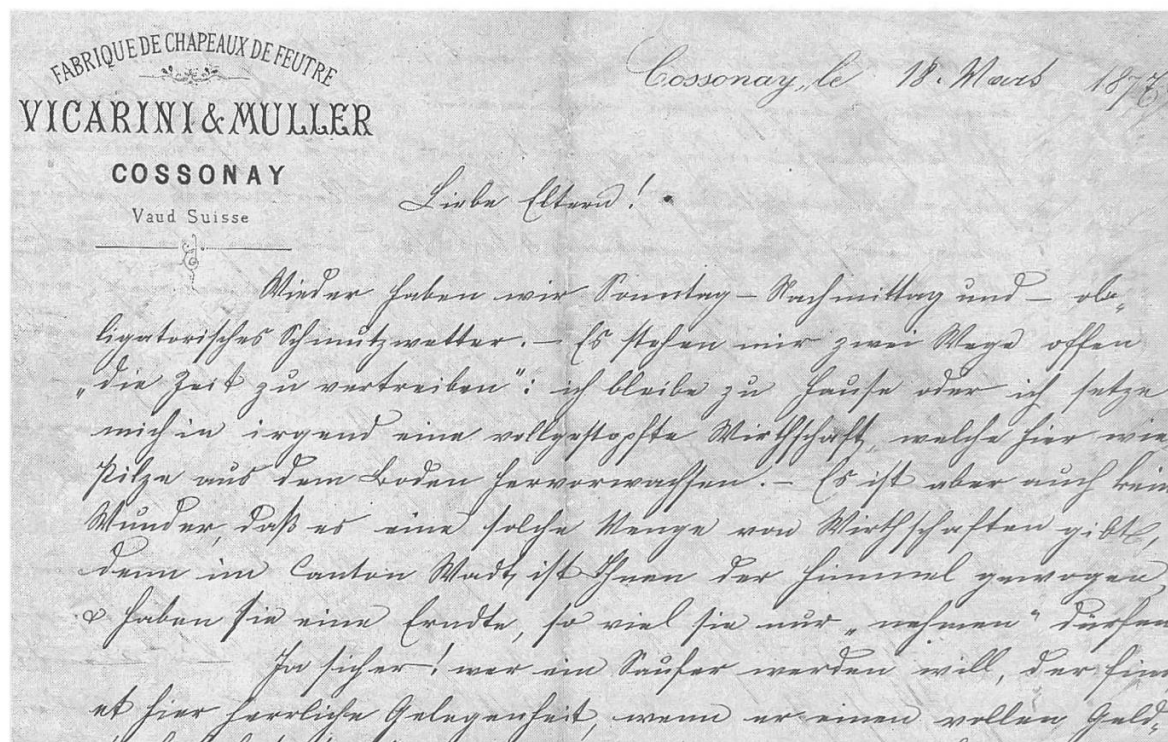 FABRIQUE DE CHAPEAUX DE FEUTRE
VICARINI & MULLER
COSSONAY
Vaud Suisse
Cossonay, le 18. Mars 1877
Liebe Eltern!
Wieder haben wir Sonntag – Nachmittag und – ob„
ligatorisches Schmutzwetter. – Es stehen mir zwei Wege offen
„die Zeit zu vertreiben": ich bleibe zu Hause oder ich setze
mich in irgend eine vollgestopfte Wirthschaft, welche hier wie
Pilze aus dem Boden hervorwachsen. – Es ist aber auch kein
Wunder, daß es eine solche Menge von Wirthschaften gibt,
denn im Canton Wadt, ist Ihnen der Himmel gewogen,
& haben sie eine Erndte, so viel sie nur „nehmen" dürfen
Ja sicher! wer ein Säufer werden will, der fin
et hier herrliche Gelegenheit, wenn er einen vollen Geld„